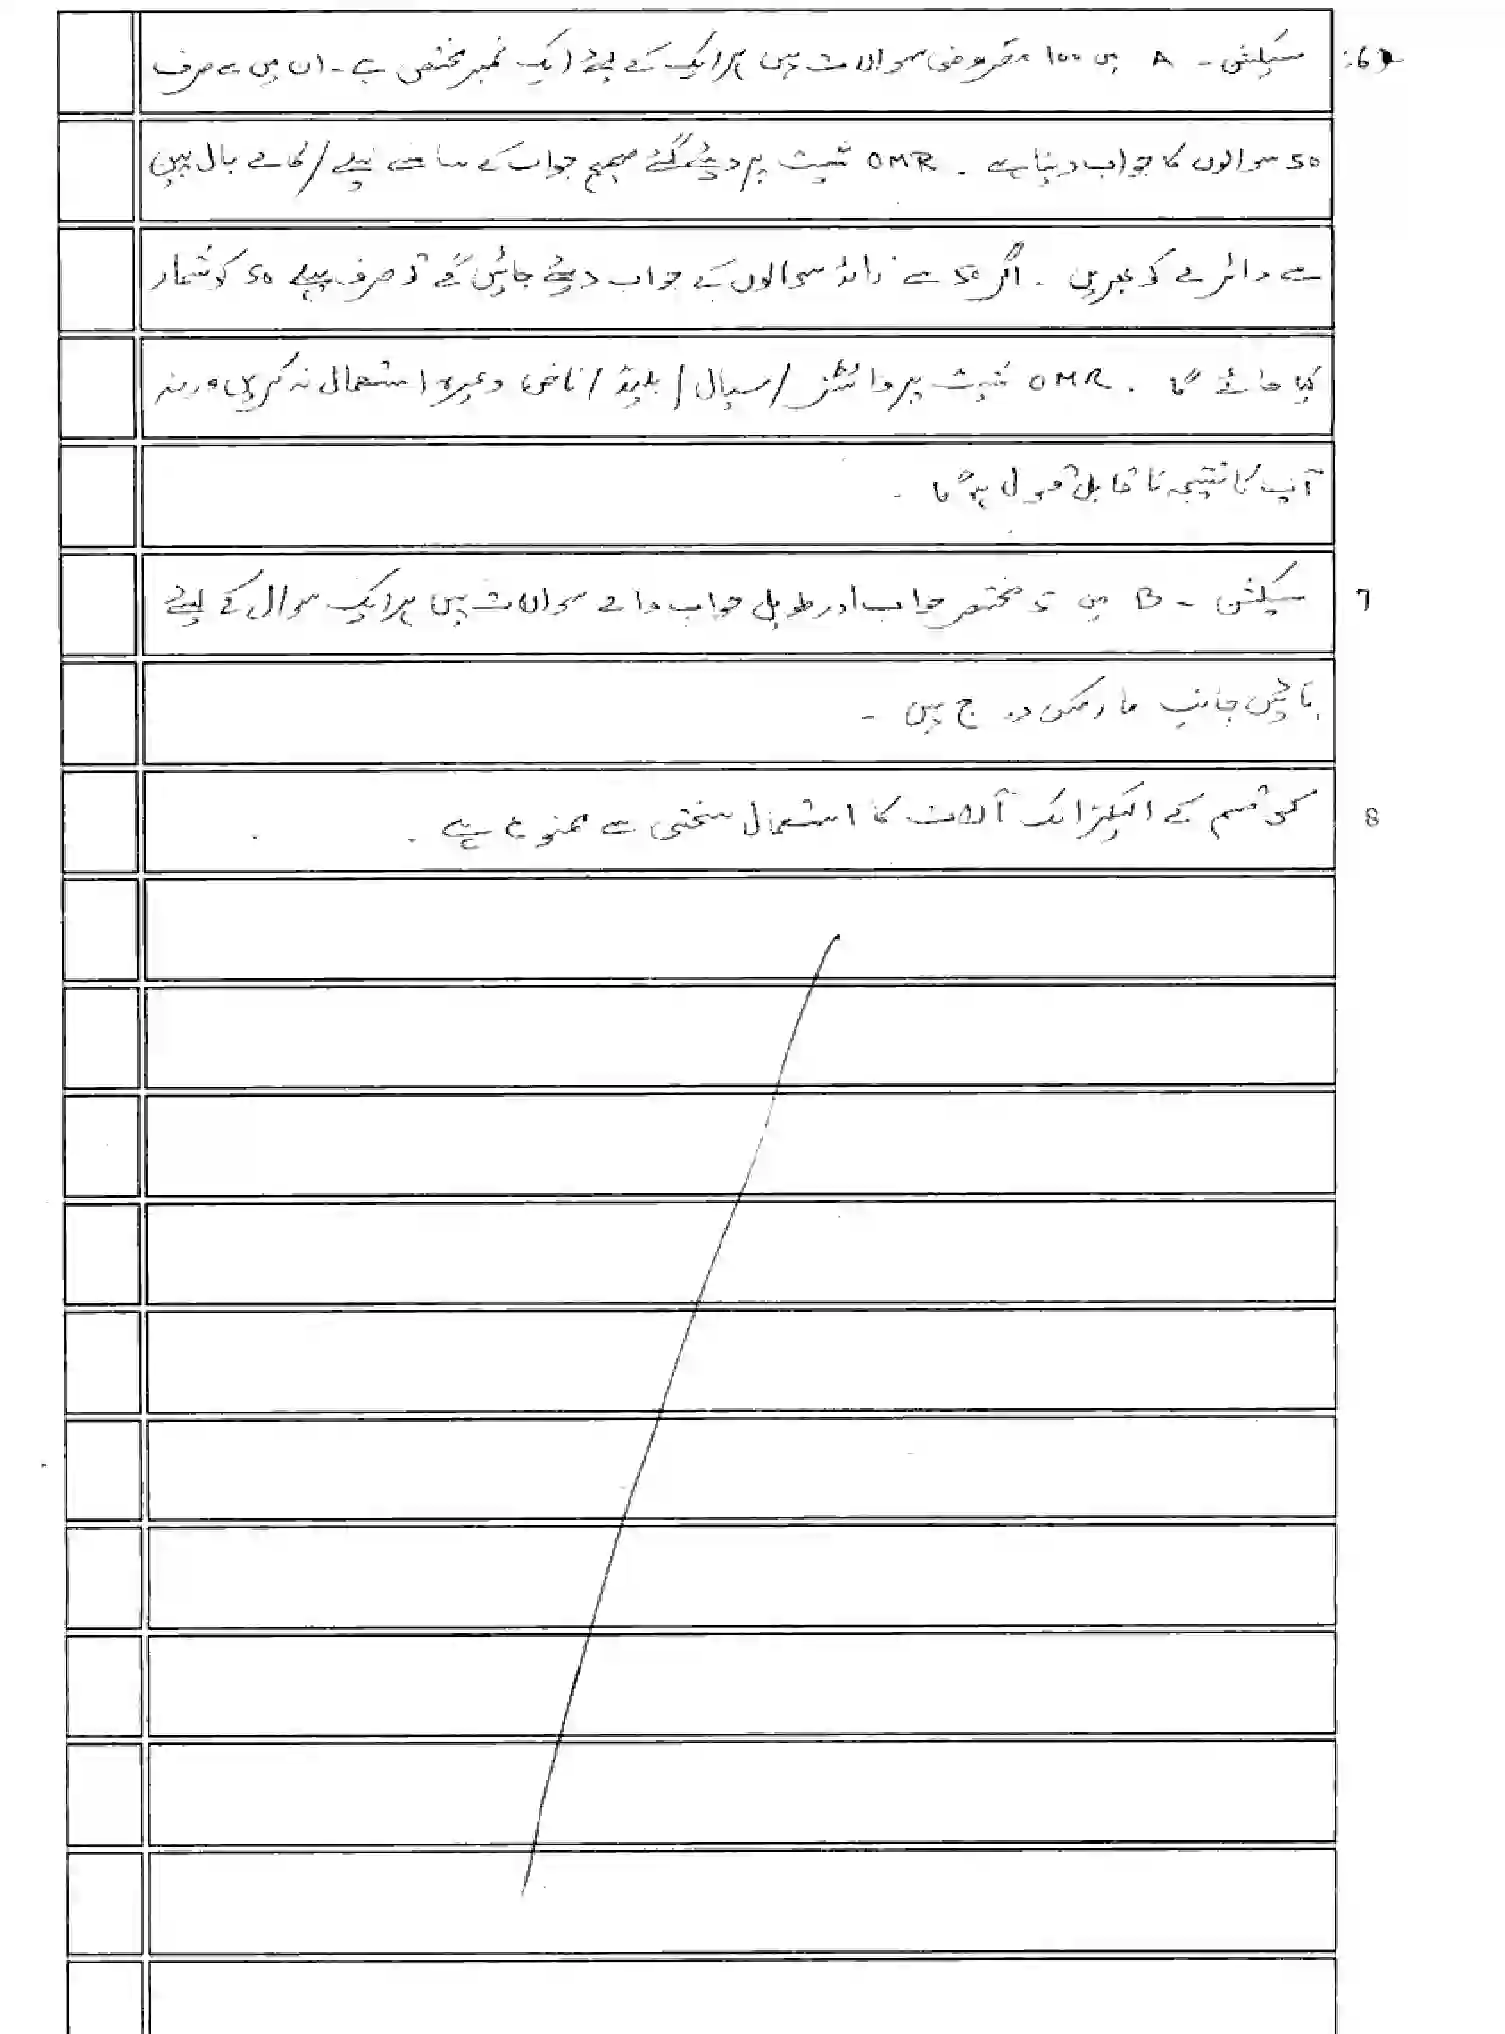 6: سیکشن - A میں 100 معروضی سوالات ہیں ہر ایک کے لئے ایک نمبر مختص ہے - ان میں سے صرف
50 سوالوں کا جواب دینا ہے . OMR شیٹ پر دیئے گئے صحیح جواب کے سامنے نیلے / کالے بال پین
سے دائرے کو بھریں . اگر 50 سے زائد سوالوں کے جواب دیئے جائیں گے تو صرف پہلے 50 کو شمار
کیا جائے گا . OMR شیٹ پر وائٹنر / سیال / بلیڈ / ناخن وغیرہ استعمال نہ کریں ورنہ
آپ کا نتیجہ نا قابل قبول ہوگا .
7 سیکشن - B میں مختصر جواب اور طویل جواب والے سوالات ہیں ہر ایک سوال کے لیئے
بائیں جانب مارکس درج ہیں -
8 کسی قسم کے الیکٹرانک آلات کا استعمال سختی سے ممنوع ہے .